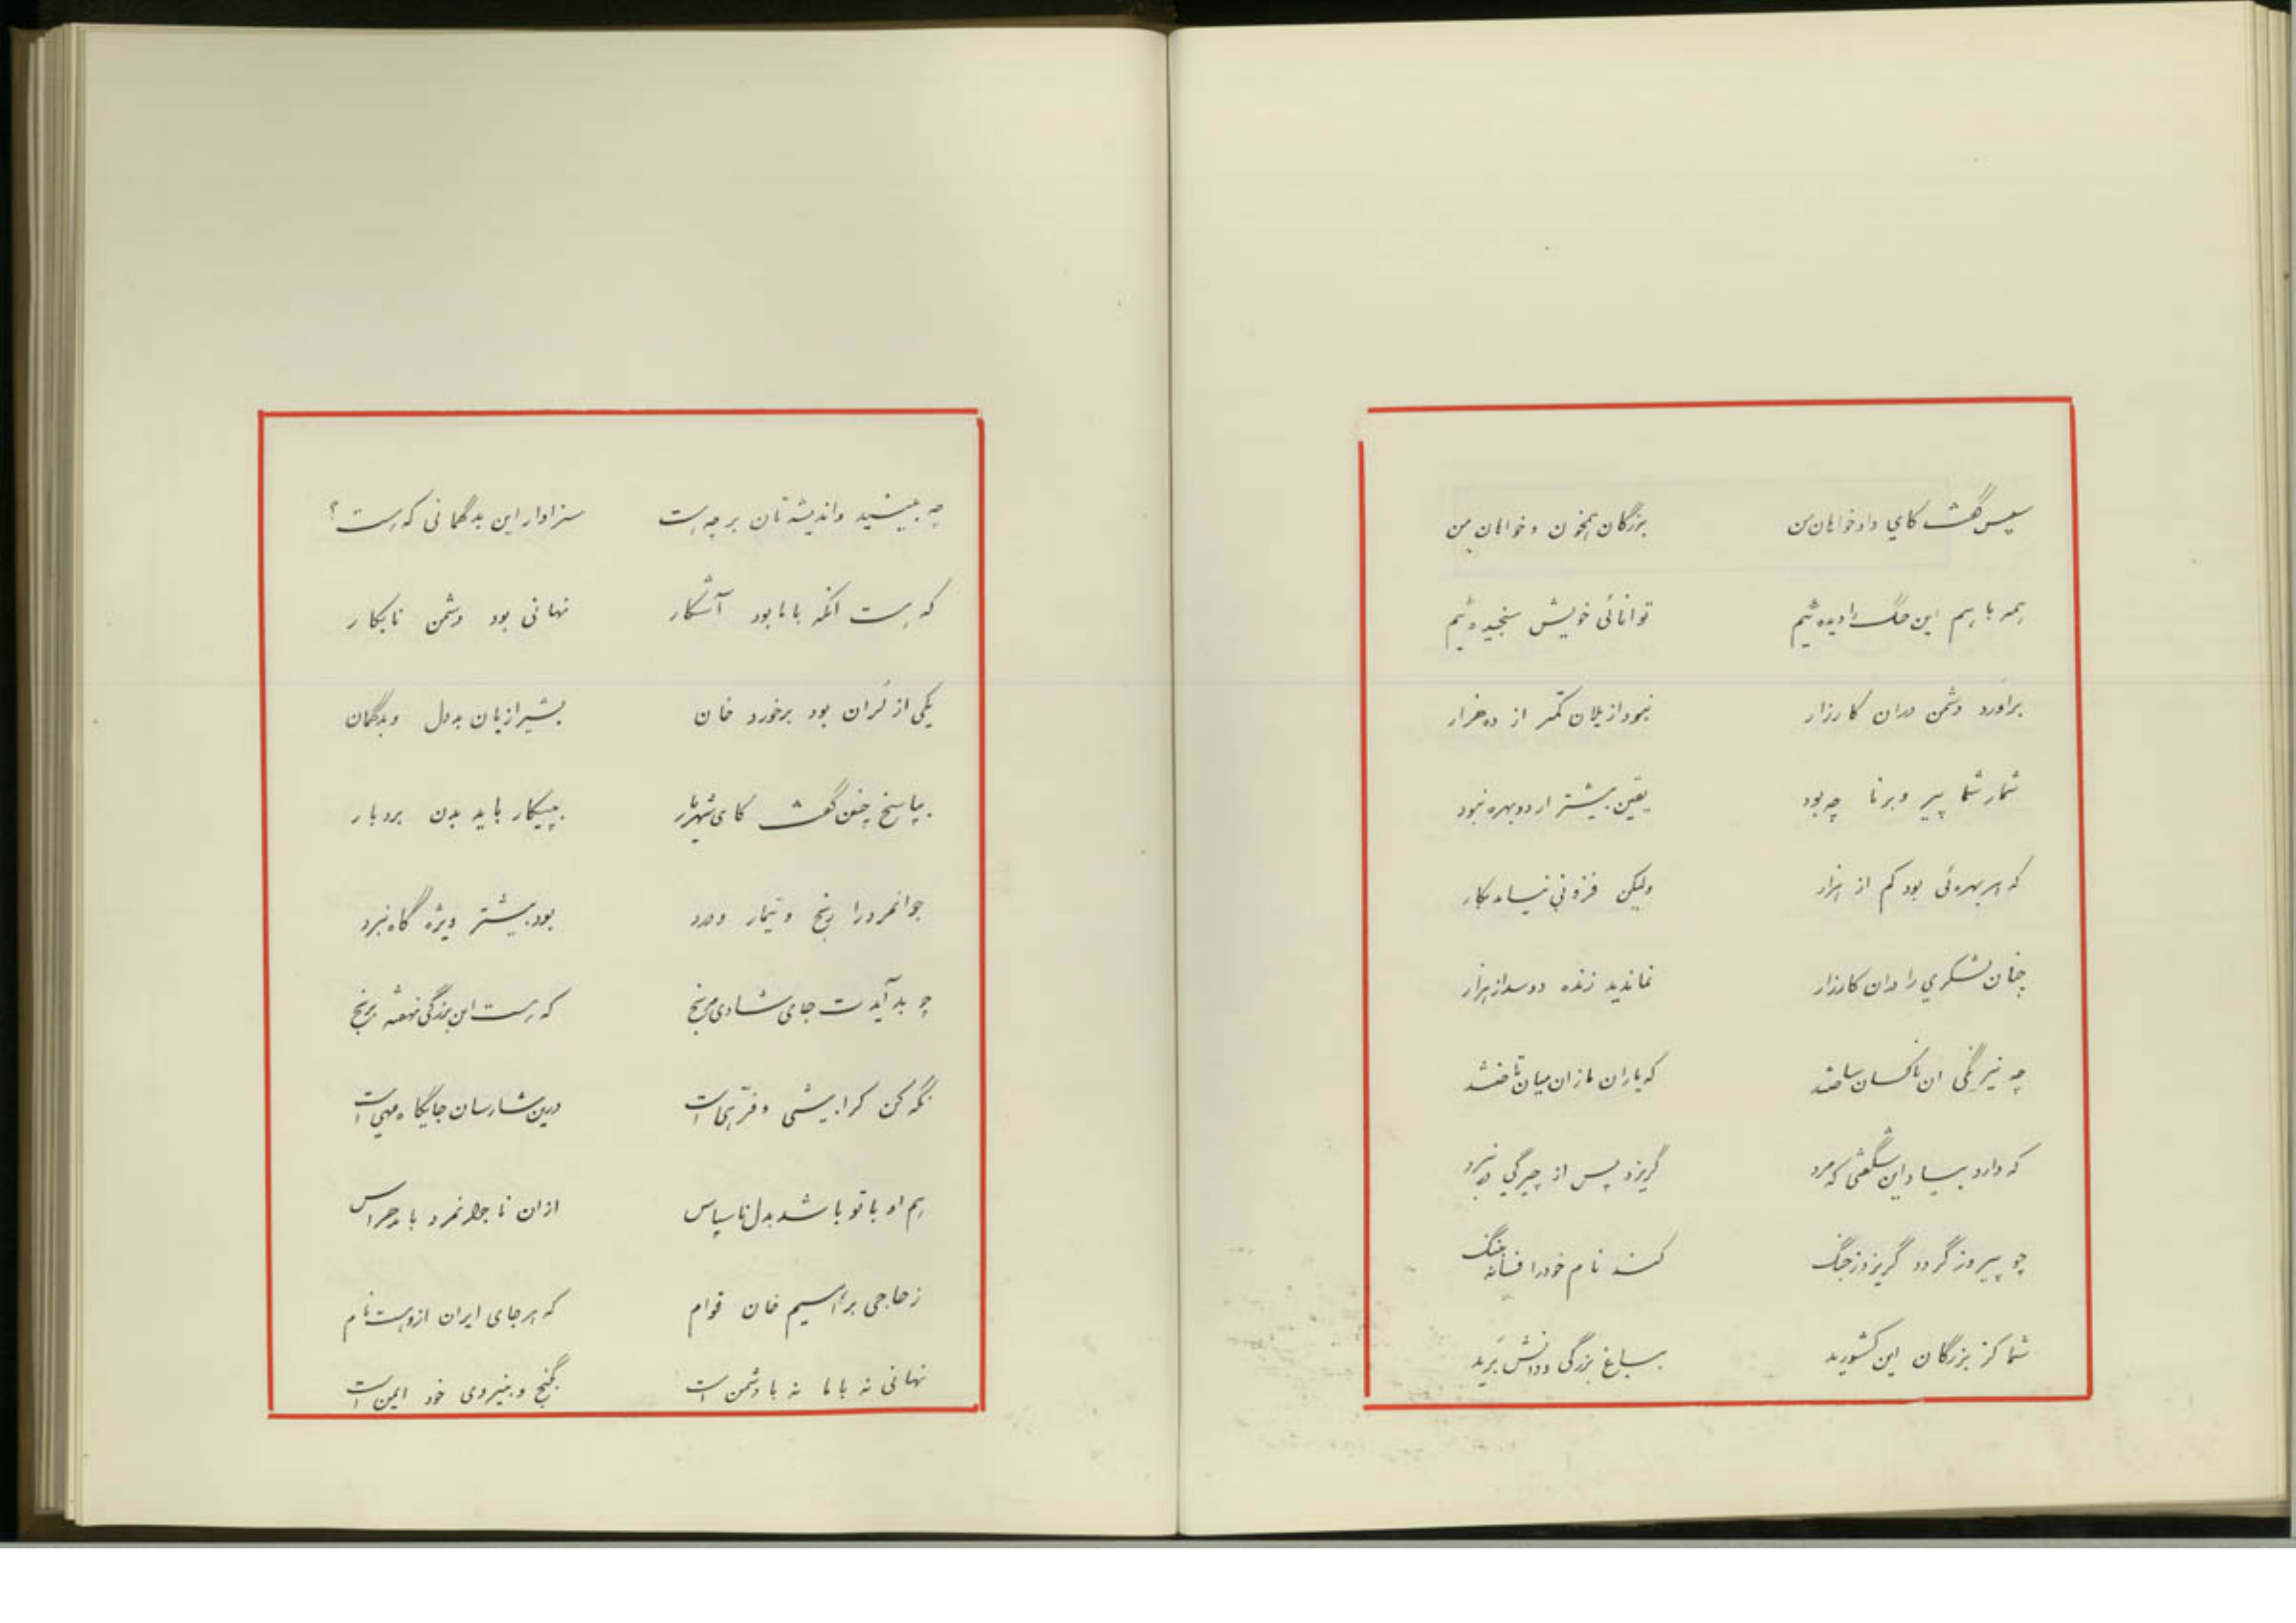 سپس گفت کای دادخواهان من بزرگان همخون و خوانان من
همه با هم این جنگ را دیده‌ئیم توانائی خویش سنجیده‌ئیم
برآورد دشمن دران کارزار نبود از یلان کمتر از ده هزار
شمار شما پیر و برنا چه بود یقین بیشتر از دو بهره نبود
که هر بهره‌ئی بود کم از هزار ولیکن فزونی نیامد بکار
چنان لشکری را دران کارزار نماندید زنده دو سد از هزار
چه نیرنگی آن ناکسان ساختند که یاران ما زان میان تاختند
که دارد بیاد این شگفتی که مرد گریزد پس از چیرگی در نبرد
چو پیروز گردد گریزد ز جنگ کند نام خود را فسانه بننگ
شما کز بزرگان این کشورید بباغ بزرگی و دانش برید
چه بینید و اندیشه‌تان بر چه است سزاوار این بدگمانی که است؟
که است آنکه با ما بود آشکار نهانی بود دشمن نابکار
یکی از سران بود برخورد خان بشیرازیان بددل و بدگمان
بپاسخ چنین گفت کای شهریار بپیکار باید بدن بردبار
جوانمرد را رنج و تیمار و درد بود بیشتر ویژه گاه نبرد
چو بد آیدت جای شادی مرنج که است این بزرگی نهفته برنج
نگه کن کرا بیشی و فرهی است درین شارسان جایگاه مهی است
هم او با تو باشد بدل ناسپاس ازان ناجوانمرد باید هراس
ز حاجی براهیم خان قوام که هر جای ایران ازوست نام
نهانی نه با ما نه با دشمن است بگنج و بنیروی خود ایمن است